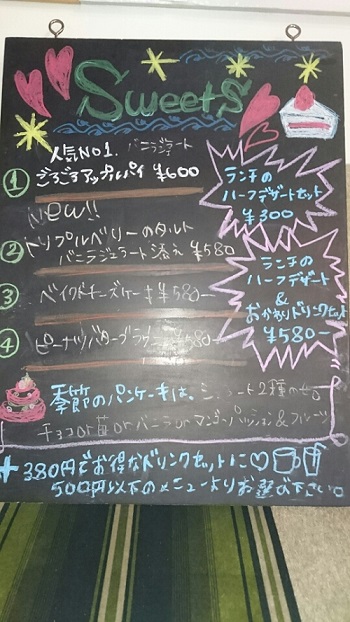 Sweets
人気NO1. バニラジェラート
① ごろごろアップルパイ ¥600
New!!
② トリプルベリーのタルト
バニラジェラート添え ¥580
③ ベイクドチーズケーキ ¥580-
④ ピーナッツバターブラウニー ¥580-
ランチの
ハーフデザートセット
¥300
ランチの
ハーフデザート
&
おかわりドリンクセット
¥580-
季節のパンケーキは、ジェラート2種のせ
チョコor苺orバニラorマンゴーパッション&フルーツ
+380円でお得なドリンクセットに♡
500円以下のメニューよりお選び下さい。